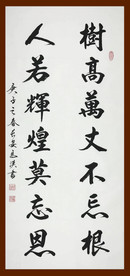 樹高萬丈不忘根
人若輝煌莫忘恩
庚子之春